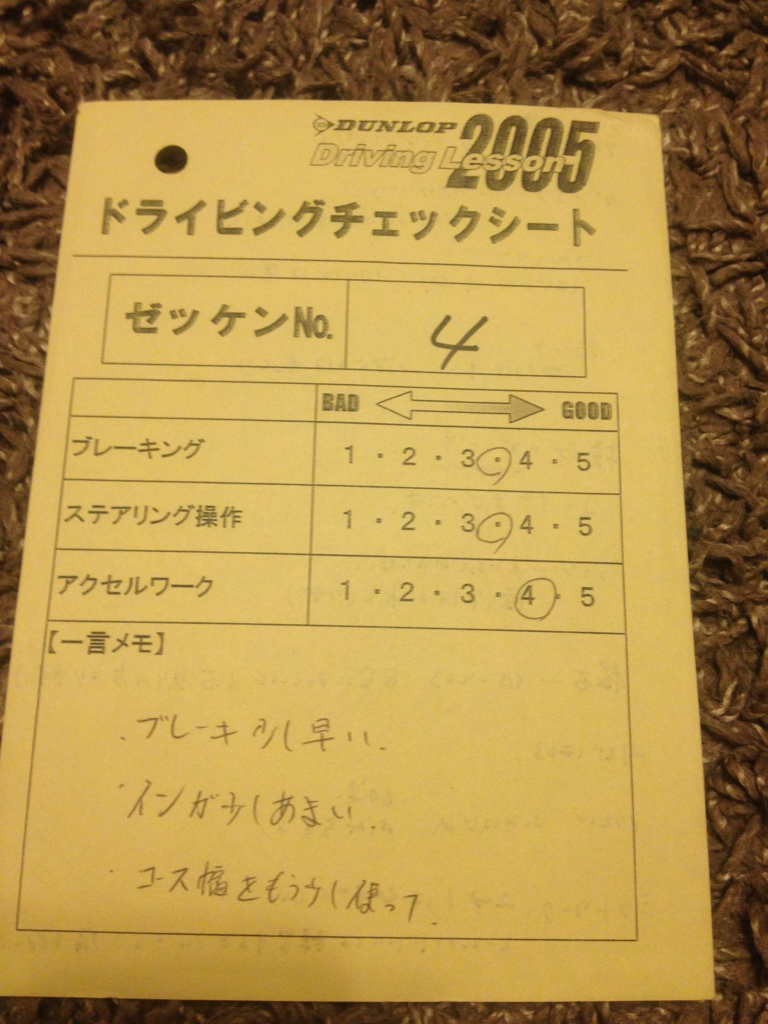 DUNLOP
Driving Lesson 2005
ドライビングチェックシート
ゼッケンNo. 4
BAD GOOD
ブレーキング 1・2・3・4・5
ステアリング操作 1・2・3・4・5
アクセルワーク 1・2・3・4・5
【一言メモ】
・ブレーキ少し早い.
・インが少しあまい.
・コース幅をもう少し使って.